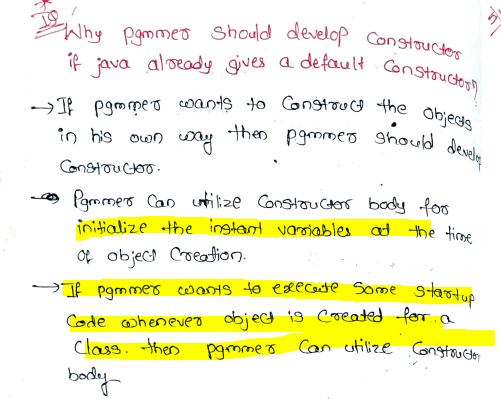 * IQ
Why pgmmer should develop constructor
if java already gives a default constructor?
→ If pgmmer wants to construct the objects
in his own way then pgmmer should develop
constructor.
→ Pgmmer can utilize constructor body for
initialize the instant variables at the time
of object creation.
→ If pgmmer wants to execute some startup
code whenever object is created for a
class. then pgmmer can utilize constructor
body